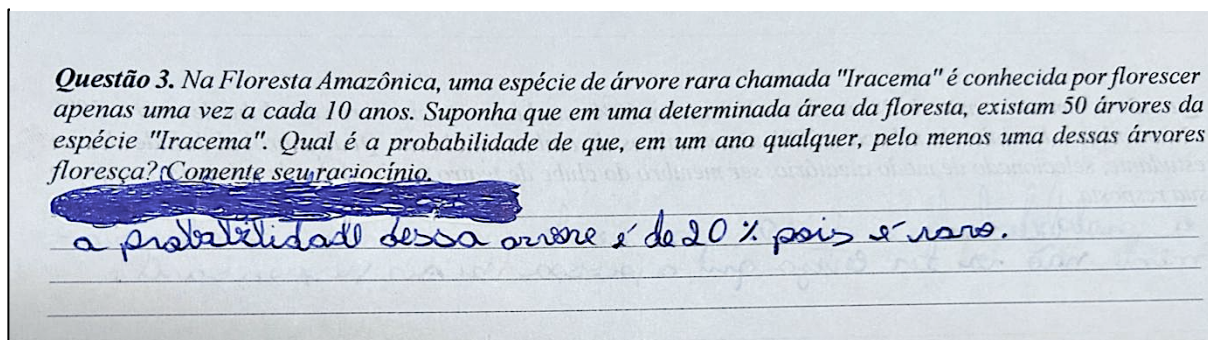 Questão 3. Na Floresta Amazônica, uma espécie de árvore rara chamada "Iracema" é conhecida por florescer
apenas uma vez a cada 10 anos. Suponha que em uma determinada área da floresta, existam 50 árvores da
espécie "Iracema". Qual é a probabilidade de que, em um ano qualquer, pelo menos uma dessas árvores
floresça? Comente seu raciocínio.
a probabilidade dessa arvore é de 20 % pois é raro.